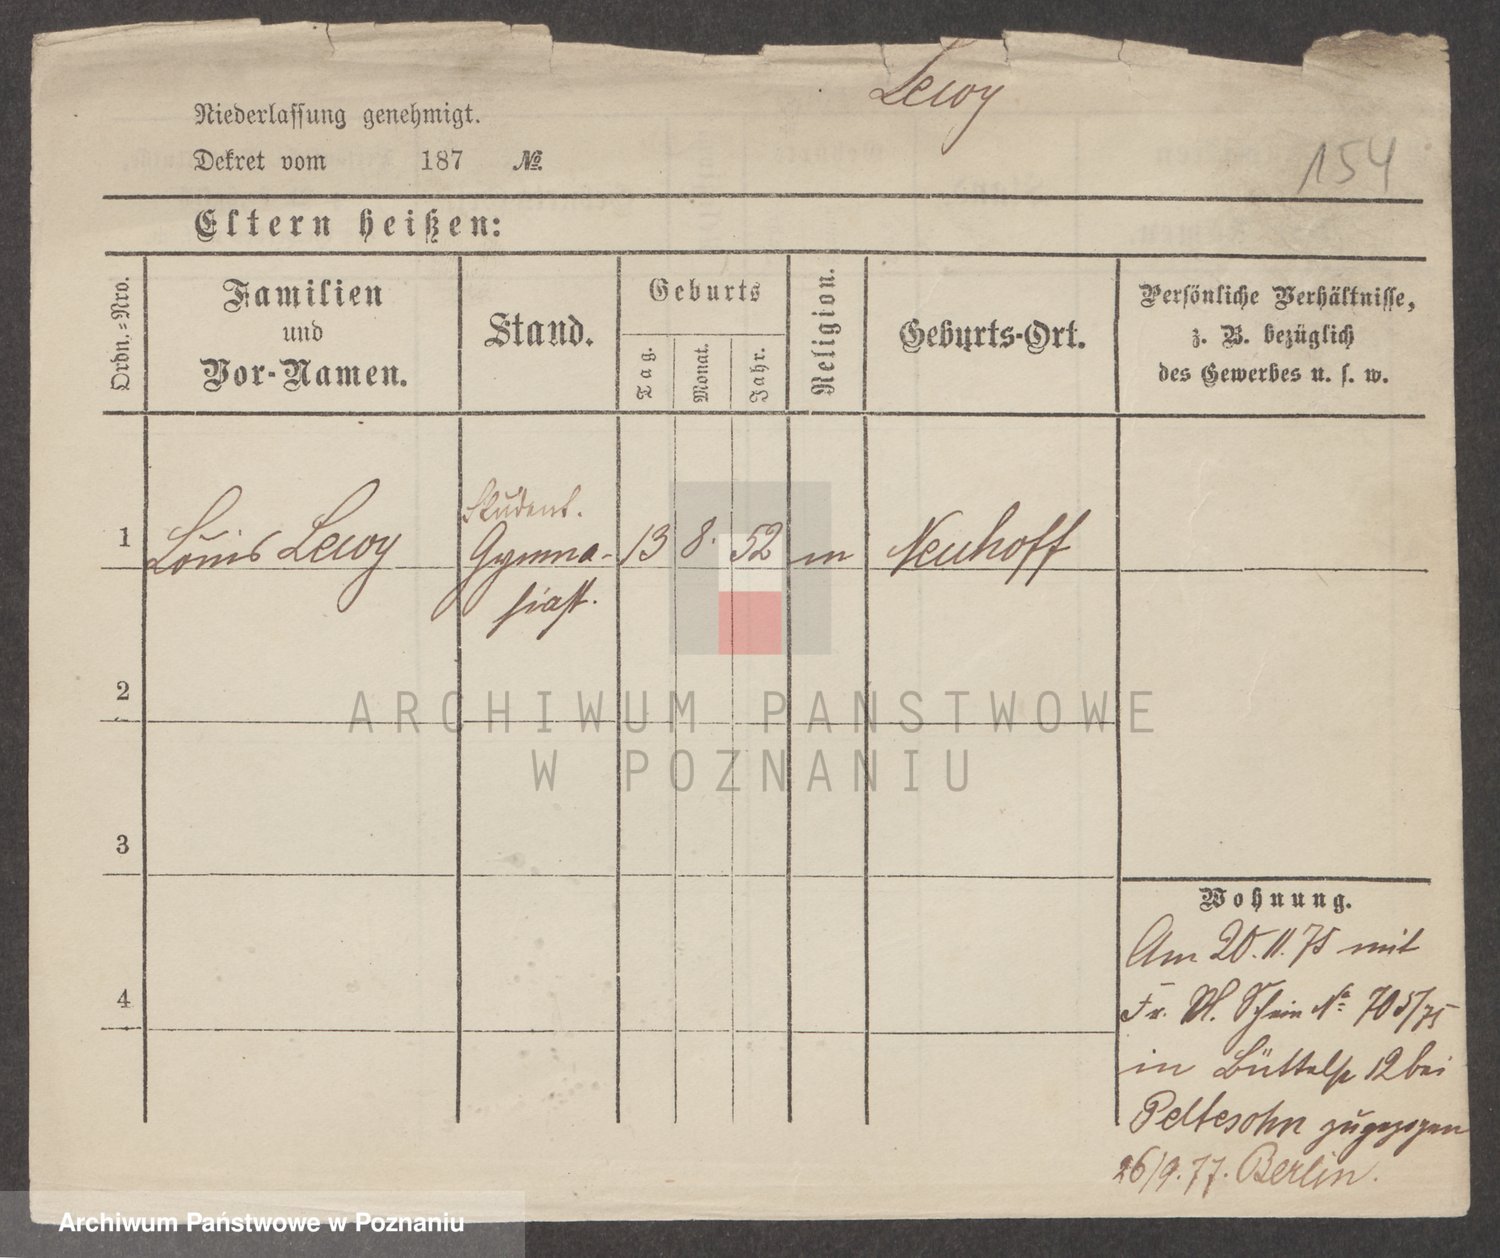 Lewy
Niederlassung genehmigt.
154
Dekret vom 187 №.
Eltern heißen:
Ordn.-Nro.
Familien
und
Vor-Namen.
Stand.
Geburts
Tag.
Monat.
Jahr.
Religion.
Geburts-Ort.
Persönliche Verhältnisse,
z. B. bezüglich
des Gewerbes u. s. w.
Student.
1 Louis Lewy Gymna- 13 8. 52 m Neuhoff
siast.
2
ARCHIWUM PAŃSTWOWE
W POZNANIU
3
Wohnung.
Am 20.11.75 mit
Fr. Schein № 705/75
4
in Büttelstr 12 bei
Peltesohn zugezogen
26/9.77. Berlin.
Archiwum Państwowe w Poznaniu